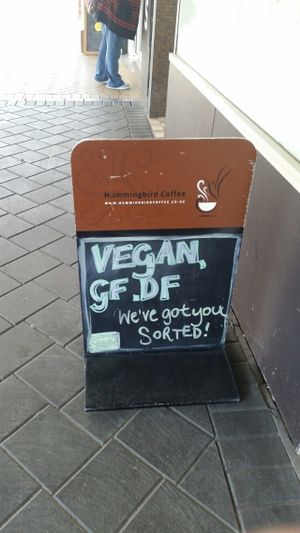 Hummingbird Coffee
WWW.HUMMINGBIRDCOFFEE.CO.NZ
VEGAN,
GF.DF
We've got you
SORTED!